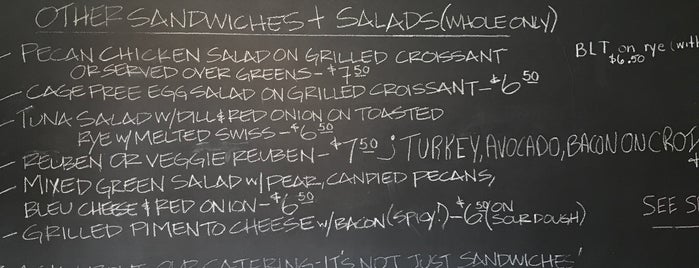 OTHER SANDWICHES + SALADS (WHOLE ONLY)
- PECAN CHICKEN SALAD ON GRILLED CROISSANT
OR SERVED OVER GREENS - $7.50
- CAGE FREE EGG SALAD ON GRILLED CROISSANT - $6.50
- TUNA SALAD W/ DILL & RED ONION ON TOASTED
RYE W/ MELTED SWISS - $6.50
- REUBEN OR VEGGIE REUBEN - $7.50 ; TURKEY, AVOCADO, BACON ON CROI
- MIXED GREEN SALAD W/ PEAR, CANDIED PECANS,
BLEU CHEESE & RED ONION - $6.50
- GRILLED PIMENTO CHEESE W/ BACON (SPICY!) - $6.50 (ON SOURDOUGH)
OUR CATERING - IT'S NOT JUST SANDWICHES!
BLT on rye (with
$6.50
SEE